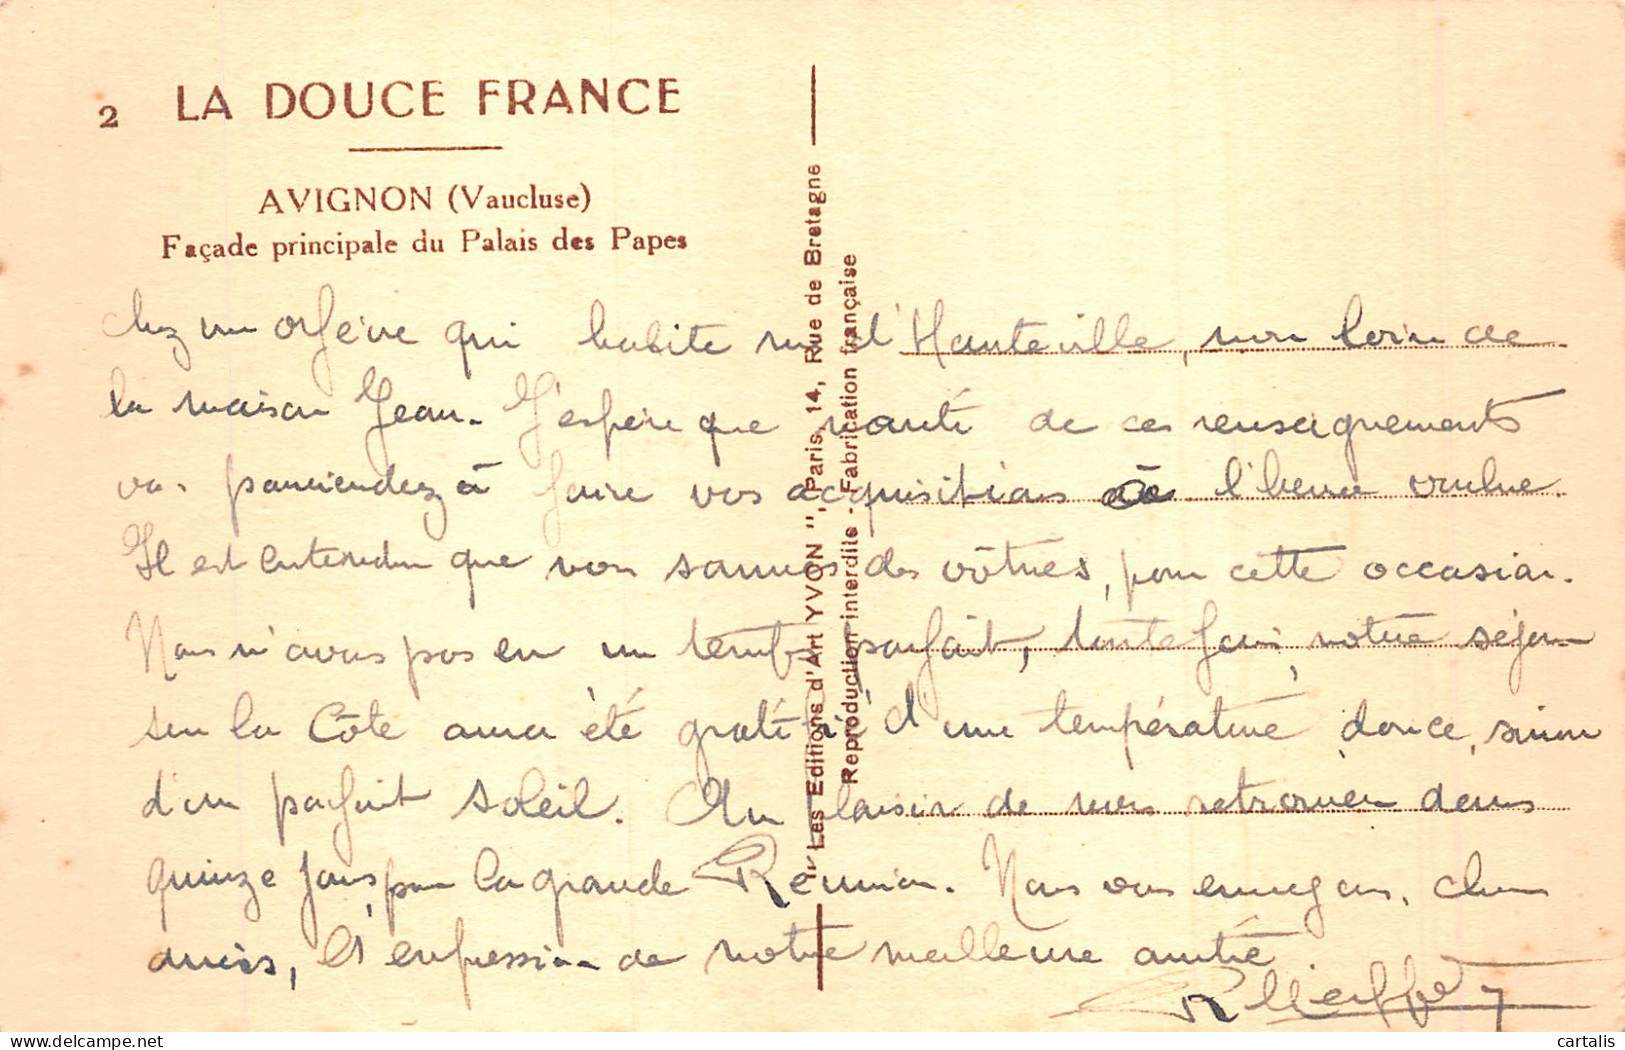 2 LA DOUCE FRANCE
AVIGNON (Vaucluse)
Façade principale du Palais des Papes
chez un orfèvre qui habite rue d'Hauteville, non loin de
la maison Jean. J'espère que nanti de ces renseignements
vous parviendrez à faire vos acquisitions à l'heure voulue.
Il est entendu que nous sommes des vôtres, pour cette occasion.
Nous n'avons pas eu un temps parfait, toutefois, notre séjour
sur la Côte aura été gratifié d'une température douce, sinon
d'un parfait soleil. Au plaisir de vous retrouver dans
quinze jours, pour la grande Réunion. Nous vous envoyons, chers
amis, l'expression de notre meilleure amitié
"Les Editions d'Art YVON", Paris, 14, Rue de Bretagne
Reproduction interdite - Fabrication française
cartalis